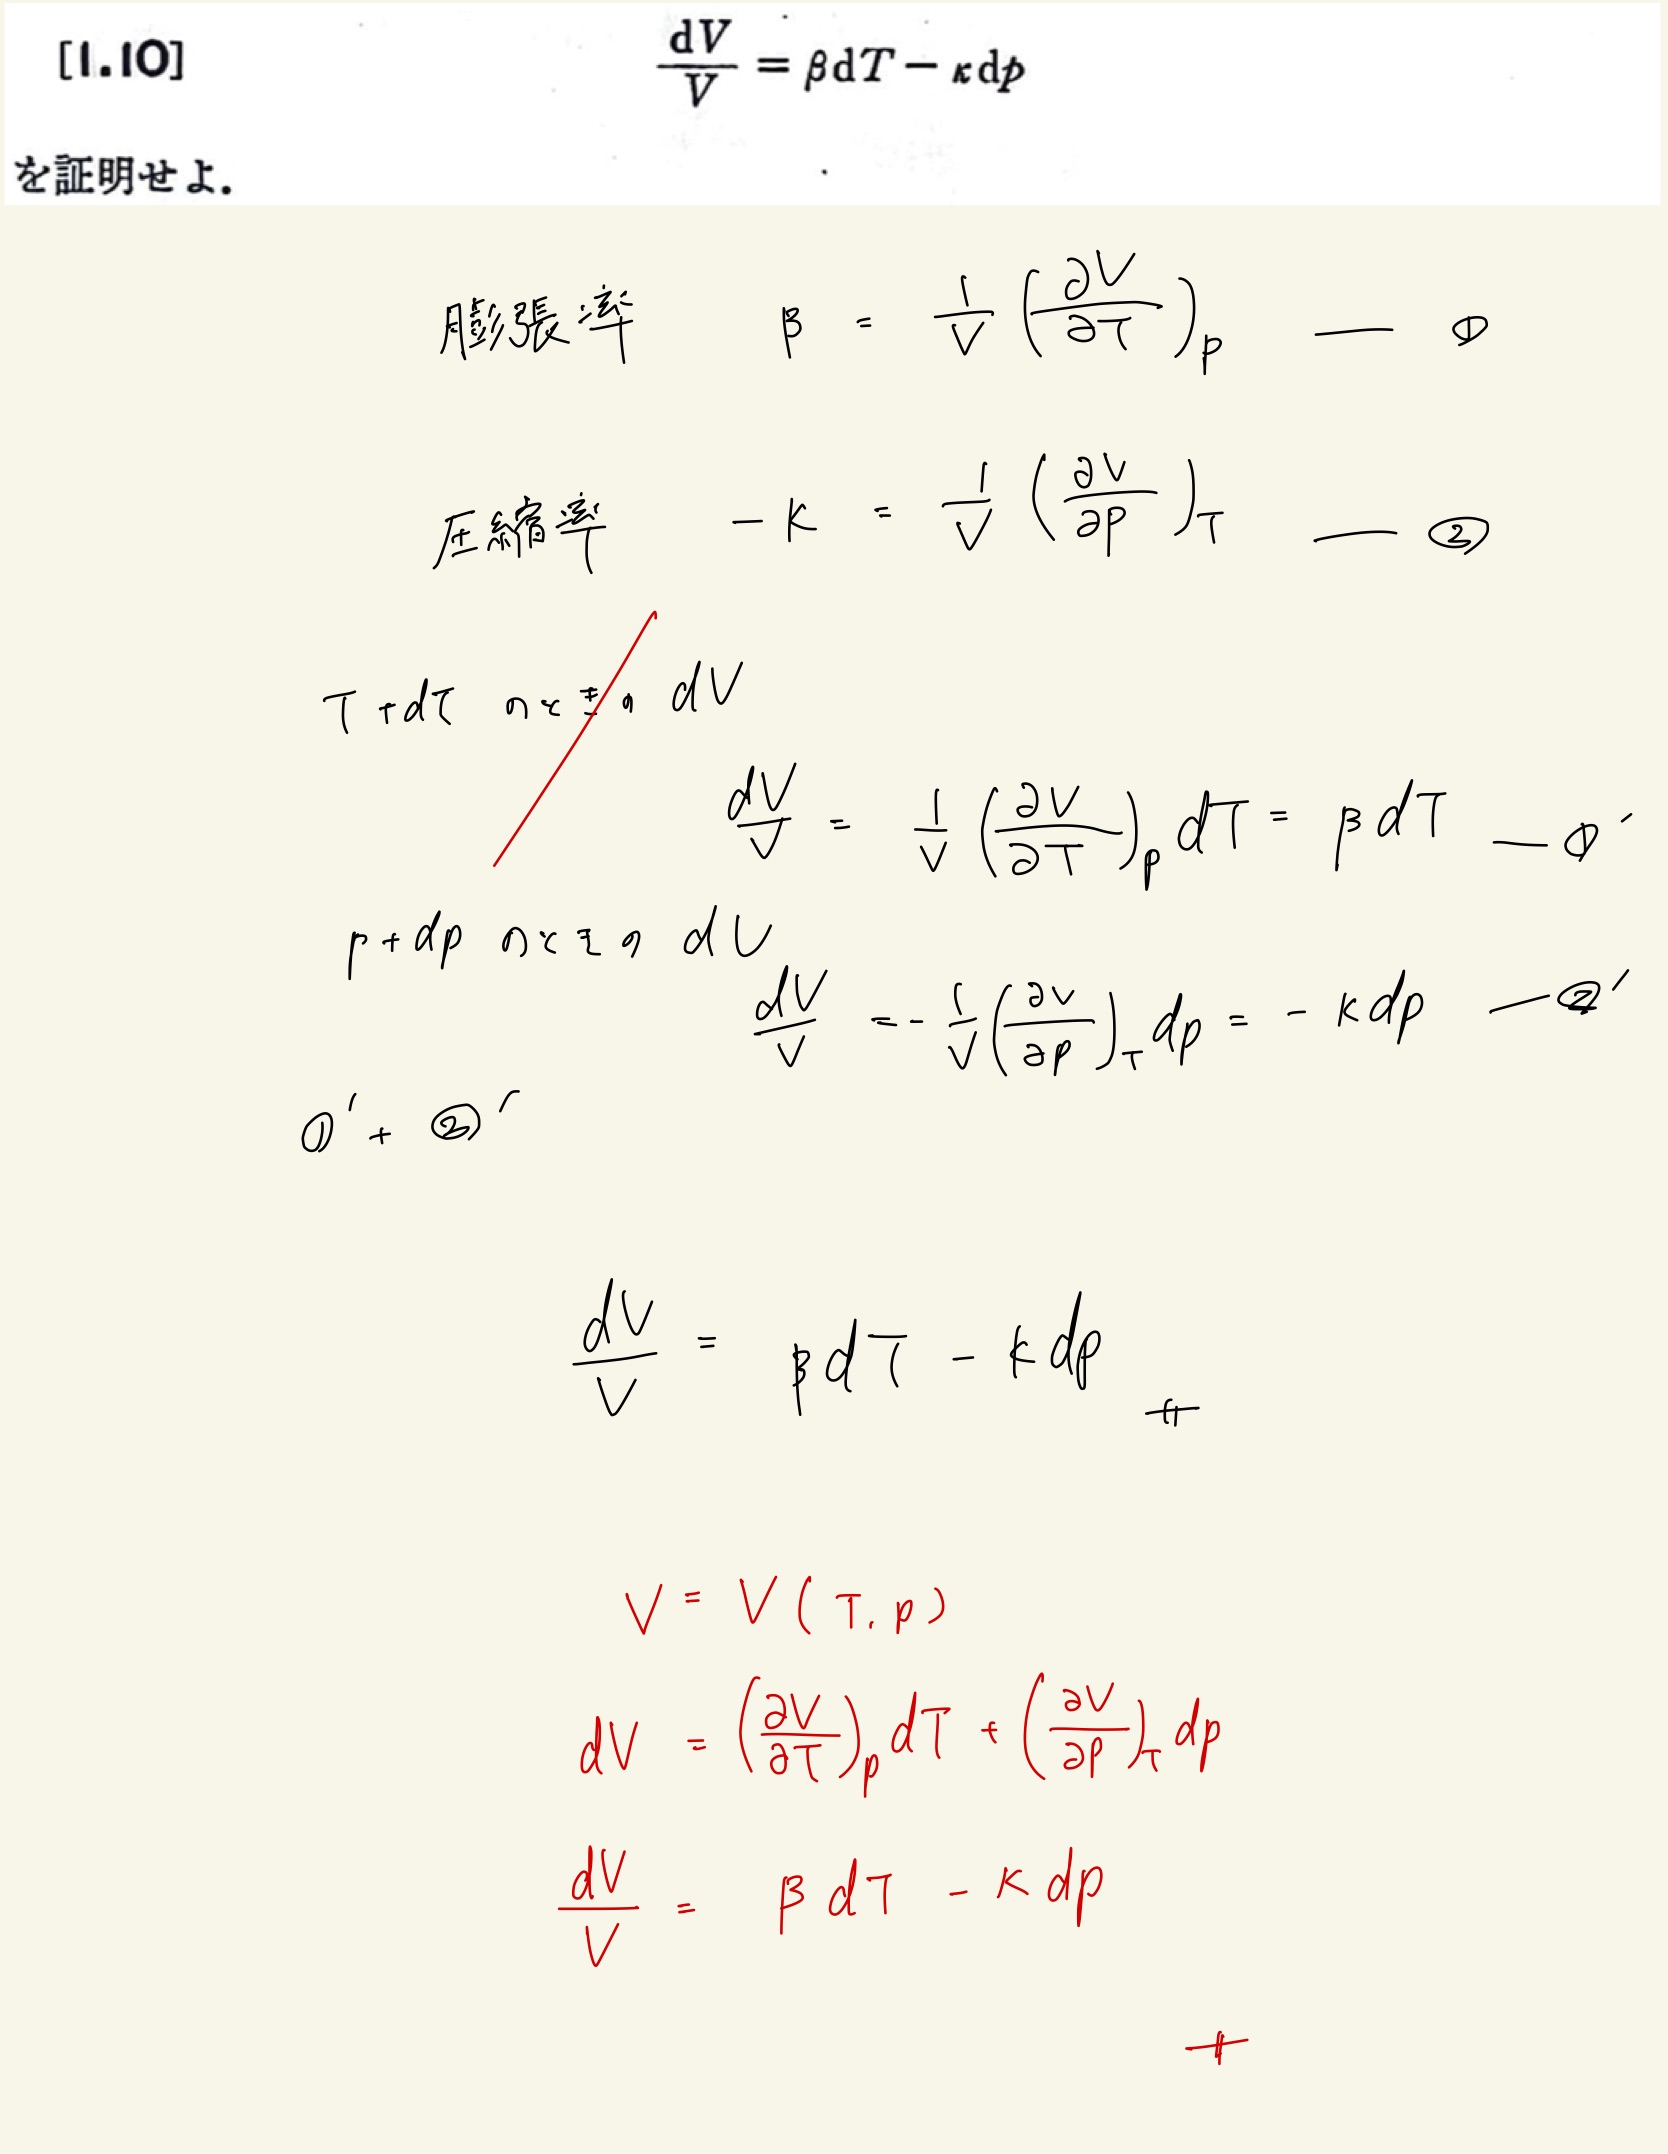 [1.10] dV/V = βdT − κdp
を証明せよ.
膨張率 β = 1/V (∂V/∂T)p — ①
圧縮率 −κ = 1/V (∂V/∂p)T — ②
T+dT のときの dV
dV/V = 1/V (∂V/∂T)p dT = βdT — ①′
p+dp のときの dV
dV/V = −1/V (∂V/∂p)T dp = −κdp — ②′
①′ + ②′
dV/V = βdT − κdp
V = V(T, p)
dV = (∂V/∂T)p dT + (∂V/∂p)T dp
dV/V = βdT − κdp